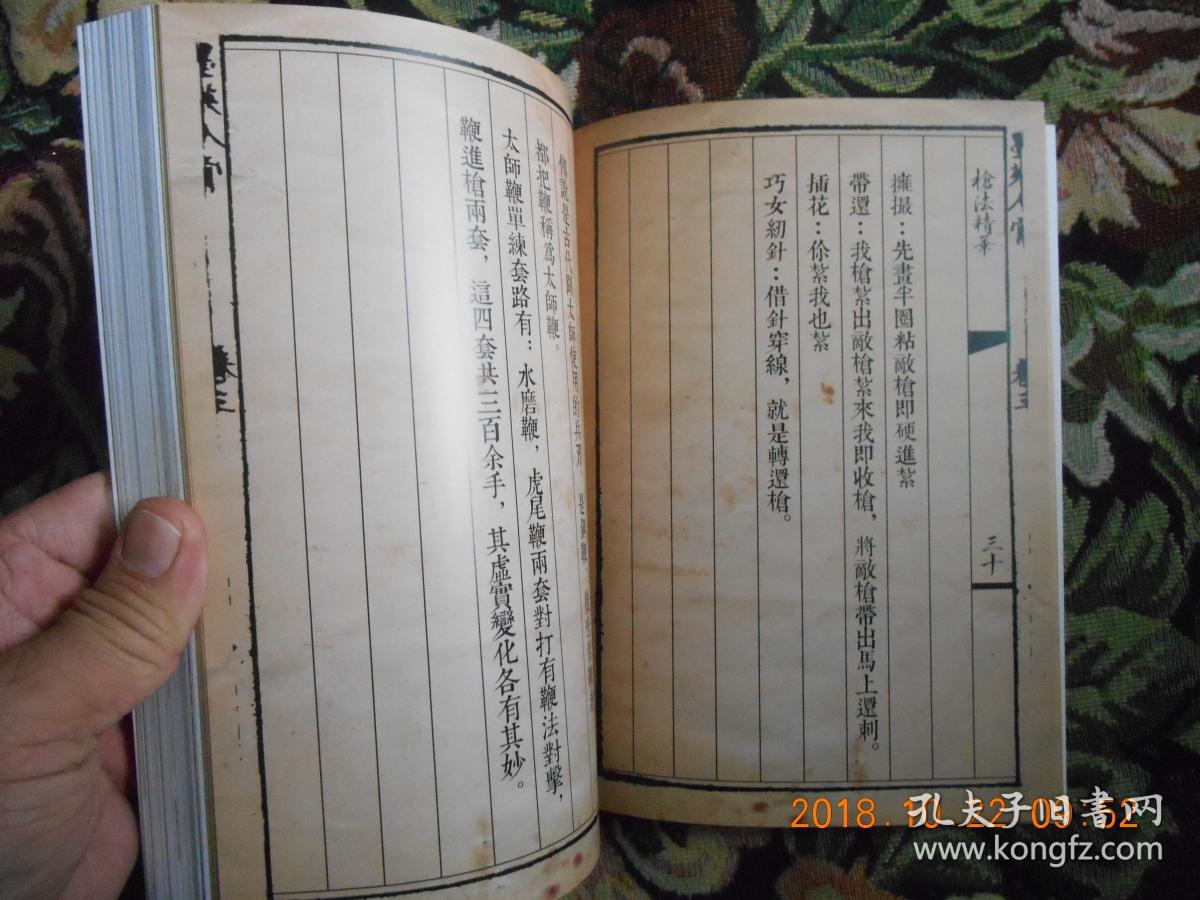 槍法精華
三十
擁撮：先畫半圈粘敵槍即硬進紮
帶還：我槍紮出敵槍紮來我即收槍，將敵槍帶出馬上還刺。
插花：你紮我也紮
巧女紉針：借針穿線，就是轉還槍。
卷三
傳說是古代聞太師使用的兵刃
都把鞭稱爲太師鞭。
太師鞭單練套路有：水磨鞭，虎尾鞭兩套對打有鞭法對擊，
鞭進槍兩套，這四套共三百余手，其虛實變化各有其妙。
卷三
2018.10.22 09:52
孔夫子旧書网
www.kongfz.com